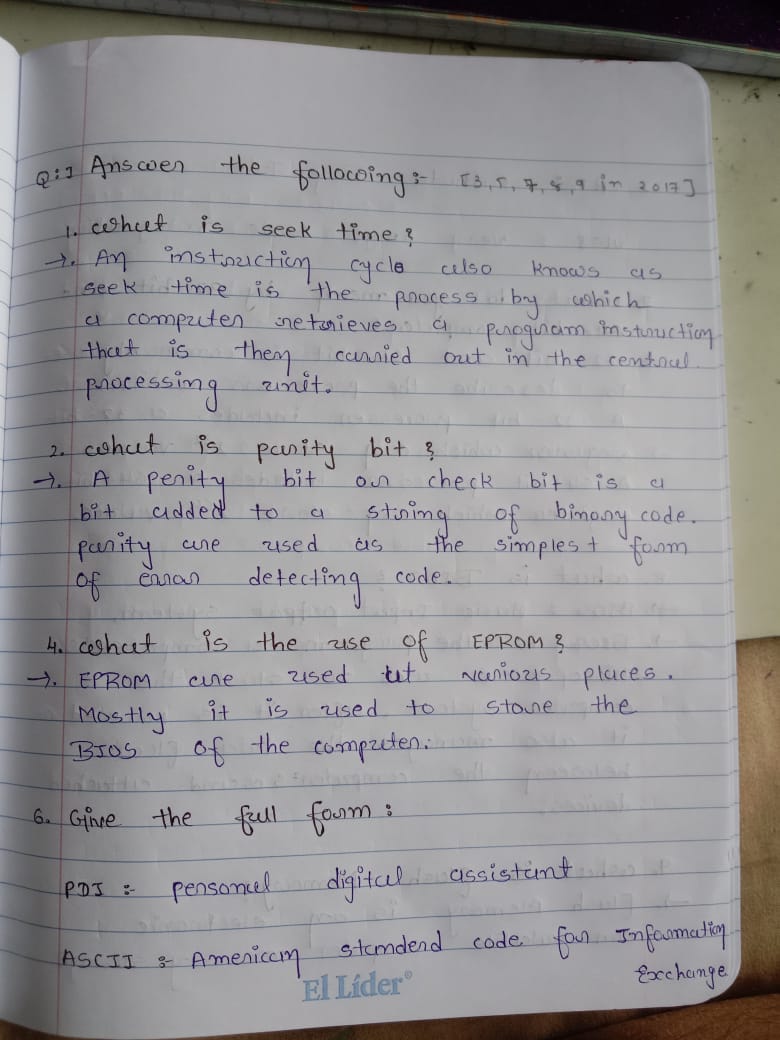 Q:1 Answer the following :- [3, 5, 7, 8, 9 in 2017]
1. What is seek time?
→. An instruction cycle also knows as
seek time is the process by which
a computer retrieves a program instruction
that is then carried out in the central
processing unit.
2. What is parity bit?
→. A perity bit or check bit is a
bit added to a string of binary code.
parity are used as the simplest form
of error detecting code.
4. What is the use of EPROM?
→. EPROM are used at various places.
Mostly it is used to store the
BIOS of the computer.
6. Give the full form :
PDI :- personal digital assistant
ASCII :- American standerd code for Information
Exchange
El Líder®